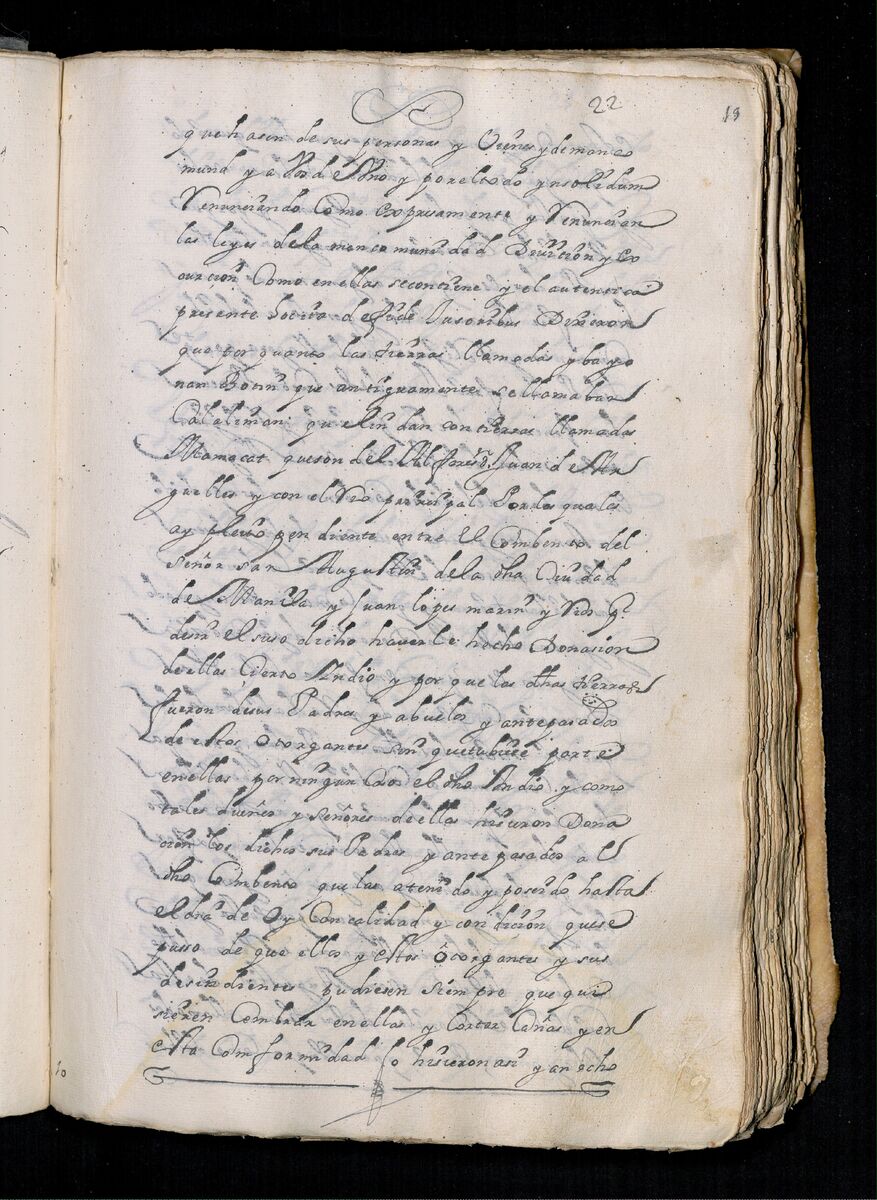 22
19
que hasen de sus personas y Vienes y de manco
mund y a Vos de Vno y por el todo ynsolidum
Renunciando Como expresamente y Renuncian
las leyes de la mancomunidad Diuicion y Ex
cucion Como en ellas se contiene y el autentica
presente hocita de fide Jusoribus Dixeron
que por quanto las tierras llamadas ybayo
nan que antiguamente se llamaban
Calaliman que lindan con tierras llamadas
Mamacat que son del Alferes Dn. Juan de Ar
guelles y con el Rio prinsipal Por las quales
ay pleito pendiente entre El Combento del
señor san Augustin de la dha Ciudad
de Manila y Juan lopes marin y Ros qe.
desir el suso dicho hauerle hecho Donasion
de ellas Cierto Yndio y por que las dhas tierras
fueron de sus Padres y abuelos y antepasados
de estos Otorgantes sin que tubiese parte
en ellas por ningun Caso el dho Yndio y como
tales dueños y señores de ellas hisieron Dona
cion los dichos sus Padres y antepasados a el
dho Combento que las a tenido y poseido hasta
el dia de Oy Con calidad y condicion que se
pusso de que ellos y estos Otorgantes y sus
desendientes pudiesen siempre que qui
sieren Sembrar en ellas y Cortar Cañas y en
esta Comformidad lo hisieron asi y an echo